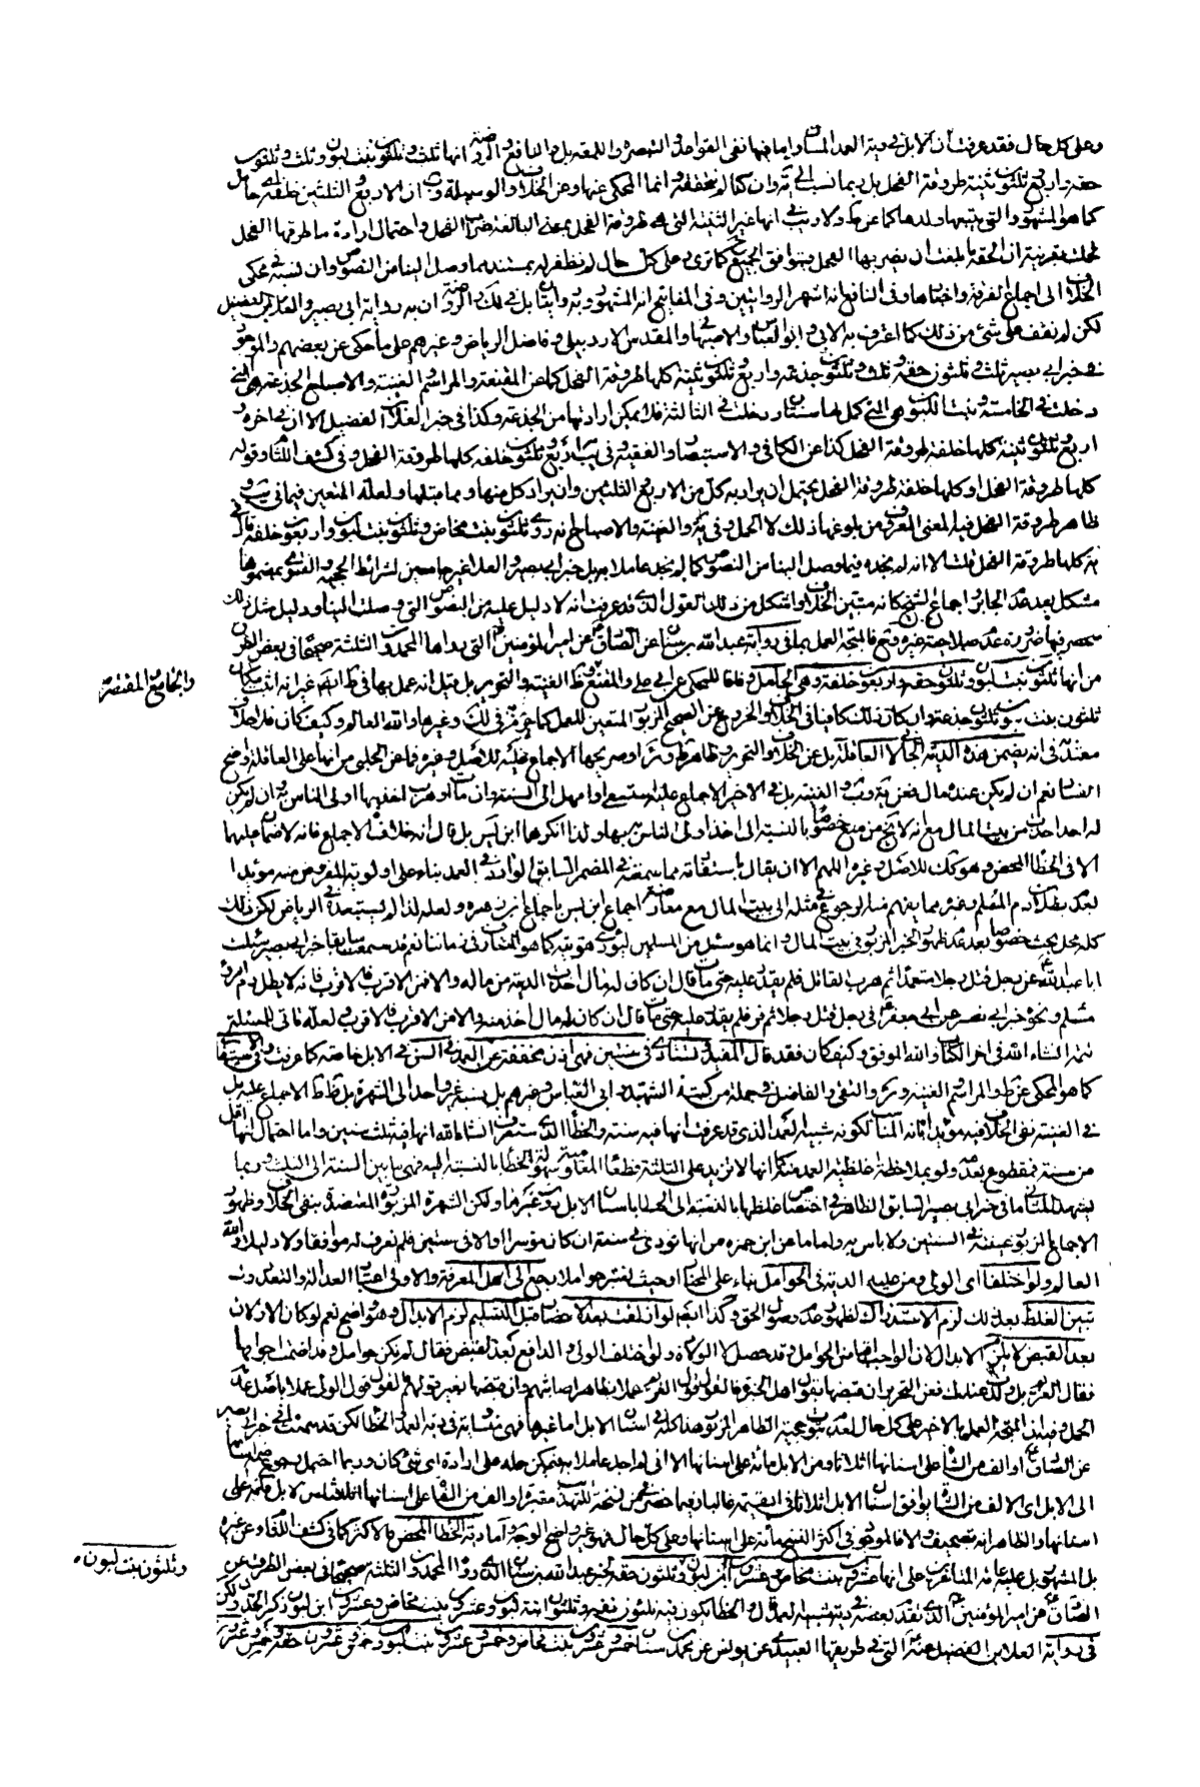 وعلى كل حال فقد عرفت أن الابل في دية العمد وأما فيها نفي القواعد والتبصرة واللمعة بل والنافع والروضة انها ثلث وثلثون بنت لبون وثلث وثلثون
حقة واربع وثلثون ثنية طروقة الفحل بل ربما نسب الى وان كنا لم نتحققه وانما المحكي عنها وعن الخلاف والوسيلة ان الاربع والثلثين خلفة اي حامل
كما هو المشهور التي يتبعها ولدها كما عن ولا ريب في انها غير الثنية التي هي طروقة الفحل بمعنى البالغة ضراب الفحل واحتمال ارادة ما طرقها الفحل
فحملت بقرينة ان الحقة ما بلغت ان يضربها الفحل فيتوافق الجميع كما ترى على كل حال لم نظفر له بمستند مما وصل الينا من النصوص وان نسبه في محكي
الخلاف الى اجماع الفرقة واخبارها وفي النافع انه اشهر الروايتين وفي المفاتيح انه المشهور وبه روايتان بل في الروضة ان به رواية ابي بصير والعلا بن الفضيل
لكن لم نقف على شيء من ذلك كما اعترف به الابي وابو العباس والاصبهاني والمقدس الاردبيلي وفاضل الرياض وغيرهم على ما حكى عن بعضهم والموجود
في خبر ابي بصير ثلث وثلثون حقة وثلث وثلثون جذعة واربع وثلثون ثنية كلها طروقة الفحل كما عن المقنعة والمراسم والغنية والاصباح الجذعة هي التي
دخلت في الخامسة وبنت اللبون هي التي كمل لها سنتان ودخلت في الثالثة فلا يمكن ارادتها من الجذعة وكذا في خبر العلا بن الفضيل الا ان في اخره و
اربع وثلثون ثنية كلها خلفة طروقة الفحل كذا عن الكافي والاستبصار والفقيه وفي يب اربع وثلثون خلفة كلها طروقة الفحل وفي كشف اللثام وقوله
كلها طروقة الفحل او كلها خلفة طروقة الفحل يحتمل ان يراد به كل من الاربع الثلثين وان يراد كل منها ومما قبلها ولعله المتعين فيما في يب و
ظاهر طروقة الفحل فيه المعنى المعروف من بلوغها ذلك لا الحمل وفي والغنية والاصباح انه روي ثلثون بنت مخاض وثلثون بنت لبون واربعون خلفة
كلها طروقة الفحل قلت الا انه لم نجده فيما وصل الينا من النصوص كما لم نجد عاملا به بل خبر ابي بصير والعلا غير جامعين لشرائط الحجية والفتوى بمضمونها
مشكل بعد عدم الجابر واجماع الشيخ كانه متبين الخلاف واشكل من ذلك القول الذي قد عرفت انه لا دليل عليه من النصوص التي وصلت الينا ودليل مثل ذلك
منحصر فيها ضرورة عدم صلاحية غيره فالمتجه العمل بما في رواية عبد الله بن سنان عن الصادق عن امير المؤمنين التي رواها المحمدون الثلثة صحيحا في بعض الطرق
من انها ثلثون بنت لبون وثلثون حقة واربعون خلفة وهي الحامل وفاقا للمحكي عن ابي علي والمقنع والجامع وظ الغنية والتحرير بل قيل انه عمل بها في ط غير انه اثبت مكان
ثلثون بنت لبون ثلثون جذعة وان كان ذلك كما فيما في الخلاف والخروج عن الصحيح المزبور المتعين للعمل كما عرفت في ذلك وغيرها والله العالم وكيف كان فلا خلاف
معتد به في انه يضمن هذه الدية الجاني لا العاقلة بل عن الخلاف والتحرير وظاهر ط وصريحها الاجماع عليه للاصل وغيره فما عن الحلبي من انها على العاقلة واضح
الفساد نعم ان لم يكن عنده مال فعن ية وب والغنية بل في الاخير الاجماع عليه استسعى او امهل الى السنة وان مات او هرب اخذ بها اولى الناس به ان لم يكن
له احد اخذت من بيت المال مع انه لا يخ من منع خصوصا بالنسبة الى اخذ اولى الناس به بها ولذا انكرهما ابن ادريس بل قال انه خلاف الاجماع فانه لا ضمان عليهما
الا في الخطأ المحض وهو كك للاصل وغيره اللهم الا ان يقال باستفادته مما سمعته في المضمر السابق الوارد في العمد بناء على اولوية المفروض منه مؤيدا
لعدم بطلان دم المسلم وغيره مما يفهم منه الرجوع في مثله الى بيت المال مع معارضة اجماع ابن ادريس باجماع ابن زهرة ولعله لذا لم يستبعده في الرياض لكن ذلك
كله محل بحث خصوصا بعد عدم ظهور الخبر المزبور في بيت المال وانما هو سئل من المسلمين ليؤدى هو ديته كما هو المتعارف في زماننا نعم قد سمعت سابقا خبر ابي بصير سئلت
ابا عبد الله عن رجل قتل رجلا متعمدا ثم هرب القاتل فلم يقدر عليه حتى مات قال ان كان له مال اخذت الدية من ماله والا فمن الاقرب فالاقرب فانه لا يطل دم امرء
مسلم ونحو خبر ابي نصر عن ابي جعفر في رجل قتل رجلا ثم فر فلم يقدر عليه حتى مات قال ان كان له مال اخذ منه والا من الاقرب فالاقرب ولعله فاتي للمسئلة
تتمة انشاء الله في اخر الكتاب والله الموفق وكيف كان فقد قال المفيد وتستادى في سنتين فهي اذن مخففة عن العمد في السن في الابل خاصة كما عرفت وفي الاستيفاء
كما هو المحكي عن ط والمراسم والغنية وئر والتقي والفاضل وجملة من كتبه والشهيد وابي العباس وغيرهم بل نسبه غير واحد الى الشهرة بل ظاهر ط الاجماع عليه بل
في الغنية نفي الخلاف فيه مؤيدا بانه المناسب لكونه شبيه العمد الذي قد عرفت انها فيه سنة والخطأ الذي ستعرف انشاء الله انها فيه ثلث سنين واما احتمال انها اقل
من سنة فمقطوع بعدمه ولو بملاحظة اغلظية العمد منه كما انها لا تزيد على الثلثة قطعا لمعلومية سهولة الخطأ بالنسبة اليه فهي ما بين السنة الى الثلث وربما
يشهد لذلك ما في خبر ابي بصير السابق الظاهر في اختصاص غلظها بالنسبة الى الخطا باسنان الابل دون غيره ولكن الشهرة المزبورة المعتضدة بنفي الخلاف وظهور
الاجماع المزبور عينته في السنتين ولا باس به واما ما عن ابن حمزة من انها تؤدى في سنة ان كان مؤسرا والا في سنتين فلم نعرف له موافقا ولا دليلا والله
العالم ولو اختلفا اي الولي ومن عليه الدية في الحوامل بناء على المختار وحيث نعتبر حوامل رجع الى اهل المعرفة والاولى اعتبار العدالة والتعدد ولو
تبين الغلط بعد ذلك لزم الاستدراك لظهور عدم وصول الحق وكذا ايضا لو ازلقت بعد الاحضار قبل التسليم لزم الابدال وهو واضح نعم لو كان الازلاق
بعد القبض لا يلزم الابدال لان الواجب اقباض الحوامل وقد حصل لا الولادة ولو اختلف الولي والدافع بعد القبض فقال لم يكن حوامل وقد اضمت اجوافها
فقال الغارم بل ولدت عندك فعن التحرير ان قبضها بقول اهل الخبرة فالقول قول الغارم عملا بظاهر اصابتهم وان قبضها بغير قولهم فالقول قول الولي عملا باصل عدم
الحمل وفيه ان المتجه العمل بالاخير على كل حال لعدم ثبوت حجية الظاهر المزبور هذا كله في اسنان الابل اما غيرها فهي متساوية في دية العمد والخطأ لكن قد سمعت في خبر ابي بصير
عن الصادق او الف من الشاة على اسنانها اثلاثا ومن الابل مائة على اسنانها الا اني لم اجد عاملا به فيمكن حمله على ارادة اي شيء كان وربما احتمل رجوع ضمير اسنانها
الى الابل اي الالف من الشاة يوافق اسنان الابل اثلاثا في القيمة غالبا وفيما حضرني من نسخة للتهذيب معتبرة او الف من الشاة على اسنانها اثلاثا من الابل مائة على
اسنانها والظاهر انه تصحيف والا فالموجود في اكثر النسخ مائة على اسنانها وعلى كل حال فهو غير واضح الوجه وأما دية الخطأ المحض فالاكثر كما في كشف اللثام وعن غيره
بل المشهور بل عليه عامة المتأخرين على انها عشرون بنت مخاض وعشرون ابن لبون وثلثون حقة لخبر عبد الله بن سنان الذي رواه المحمدون الثلثة صحيحا في بعض الطرق عن
الصادق عن امير المؤمنين الذي تقدم بعضه في دية شبيه العمد قال والخطأ يكون فيه ثلثون حقة وثلثون ابنة لبون وعشرون بنت مخاض وعشرون ابن لبون ذكر الحديث ولكن
في رواية العلا بن الفضيل عنه التي في طريقها العبيدي عن يونس عن محمد بن سنان خمس وعشرون بنت مخاض وخمس وعشرون بنت لبون وخمس وعشرون حقة وخمس وعشرون
والجامع والمقتصر
وثلثون بنت لبون